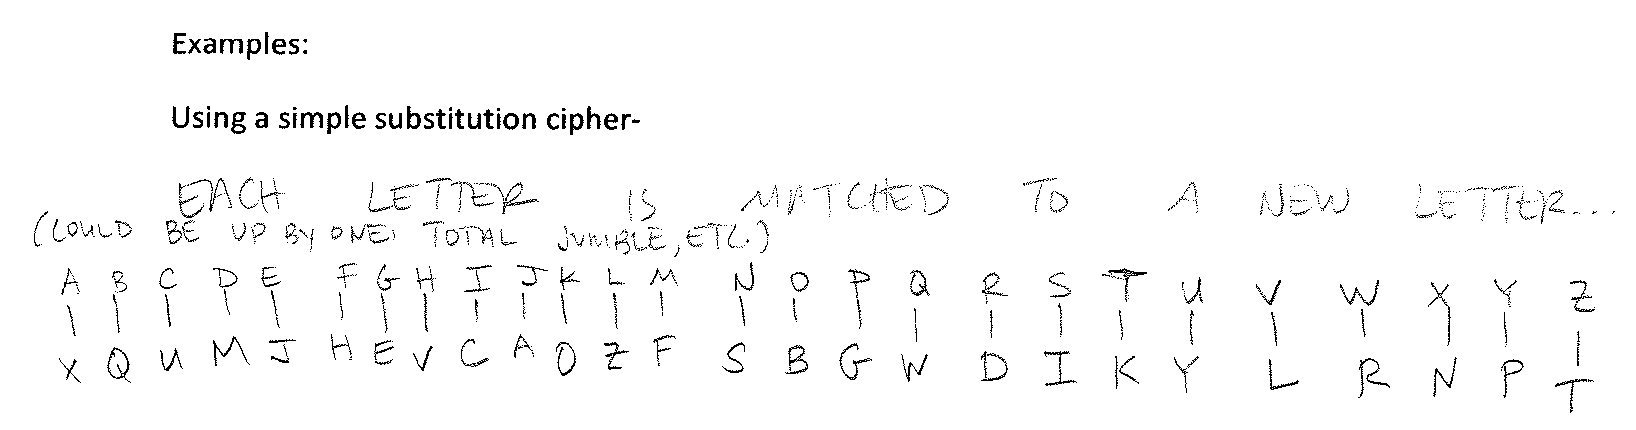 Examples:
Using a simple substitution cipher-
EACH LETTER IS MATCHED TO A NEW LETTER...
(COULD BE UP BY ONE, TOTAL JUMBLE, ETC.)
A B C D E F G H I J K L M N O P Q R S T U V W X Y Z
X Q U M J H E V C A O Z F S B G W D I K Y L R N P T